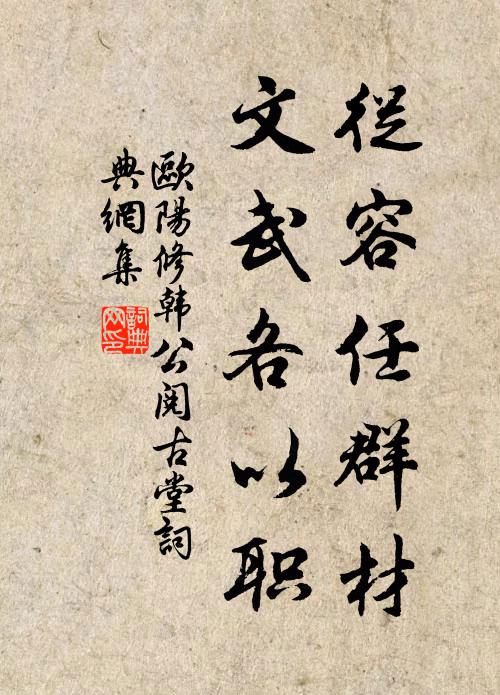 從容任群材
文武各以职
歐陽修韩公阅古堂詞
典網集
詞典网印